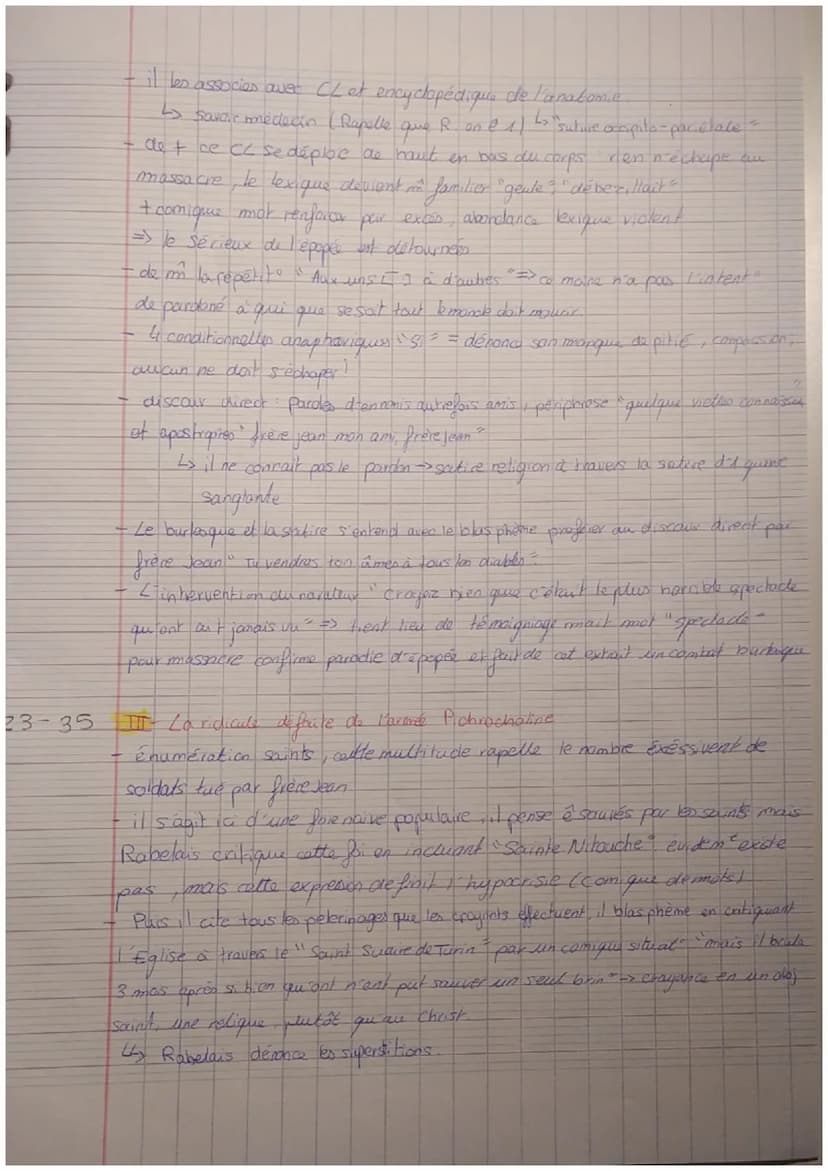 - il les associes avec CL et encyclopédique de l'anatomie
↳ savoir médecin (Rapelle que R. en é 1) ↳ "suture occipito-pariétale"
- de + ce CL se déploie de haut en bas du corps rien n'échape au
massacre, le lexique devient m̂ familier "geule", "débezillait"
+ comique mot renforcer par excès, abondance lexique violent
=> le sérieux de l'épopée est détournées
- de m̂ la répétit° "Aux uns [...] à d'autres" => ce moine n'a pas l'intent°
de pardoné à qui que se soit tout le monde doit mourir
- 4 conditionnelles anaphoriques "Si" = dénonce son manque de pitié, compassion,
aucun ne doit s'échaper !
- discour direct : paroles d'ennemis autrefois amis, périphrase "quelque vieilles connaissan
et apostrophes "frère jean mon ami, frère jean"
↳ il ne connait pas le pardon -> satire religion à travers la satire d'1 guerre
sanglante
- Le burlesque et la satire s'entend avec le blasphème proférer au discour direct par
frère Jean "Tu vendras ton âmes à tous les diables"
- L'intervention du narrateur "croyez bien que c'était le plus horrible spectacle
qu'ont ait janais vu" => tient lieu de témoigniage mait mot "spectacle"
pour massacre confirme parodie d'épopée et fait de cet extrait un combat burlesque
23-35 III- La ridicule défaite de l'armée Pichrocholine
- énumération saints, cette multitude rapelle le nombre éxéssivent de
soldats tué par frère Jean
- il s'agit ici d'une foie naive populaire, il pense ê sauvés par les saints mais
Rabelais critique cette foi en incluant "Sainte Nitouche" évidem^t existe
pas, mais cette expresion définit l'hypocrisie (comique de mots)
- Puis il cite tous les pélerinages que les croyants éffectuent, il blasphème en critiquant
l'Eglise à travers le "Saint Suaire de Turin" par un comique situat° "mais il brula
3 mois après si bien qu'ont n'ent put sauver un seul brin" -> croyance en un obj
saint, une relique plutôt qu'au Christ
↳ Rabelais dénonce les superstitions.